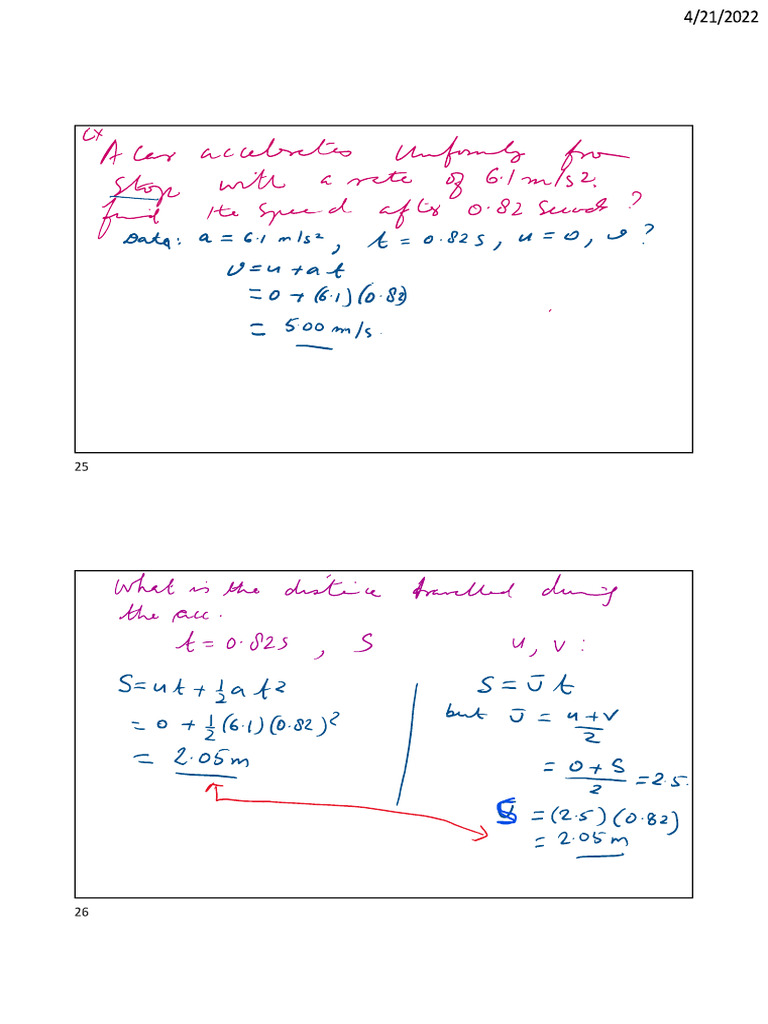 4/21/2022
Ex
A car accelerates uniformly from
stop with a rate of 6.1 m/s2.
find the speed after 0.82 seconds?
Data: a = 6.1 m/s², t = 0.82 s, u = 0, v ?
v = u + a t
= 0 + (6.1)(0.82)
= 5.00 m/s.
25
What is the distance travelled during
the acc.
t = 0.82 s , S u, v :
S = ut + 1/2 a t2
= 0 + 1/2 (6.1)(0.82)²
= 2.05 m
S = v̄ t
but v̄ = u+v/2
= 0+5/2 = 2.5.
S = (2.5)(0.82)
= 2.05 m
26